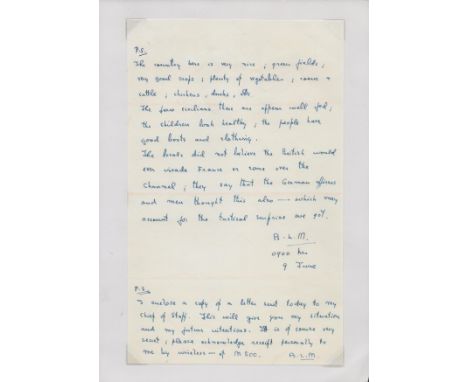 P.S.
The country here is very nice; green fields;
very good crops; plenty of vegetables; cows &
cattle; chickens, ducks, etc.
The few civilians there are appear well fed;
the children look healthy; the people have
good boots and clothing.
The locals did not believe the British would
ever invade France or come over the
Channel; they say that the German officers
and men thought this also — which may
account for the tactical surprise we got.
B.L.M.
0900 hrs
9 June
P.S.
I enclose a copy of a letter sent today to my
Chief of Staff. This will give you my situation
and my future intentions. It is of course very
secret; please acknowledge receipt personally to
me by wireless — of M500. B.L.M